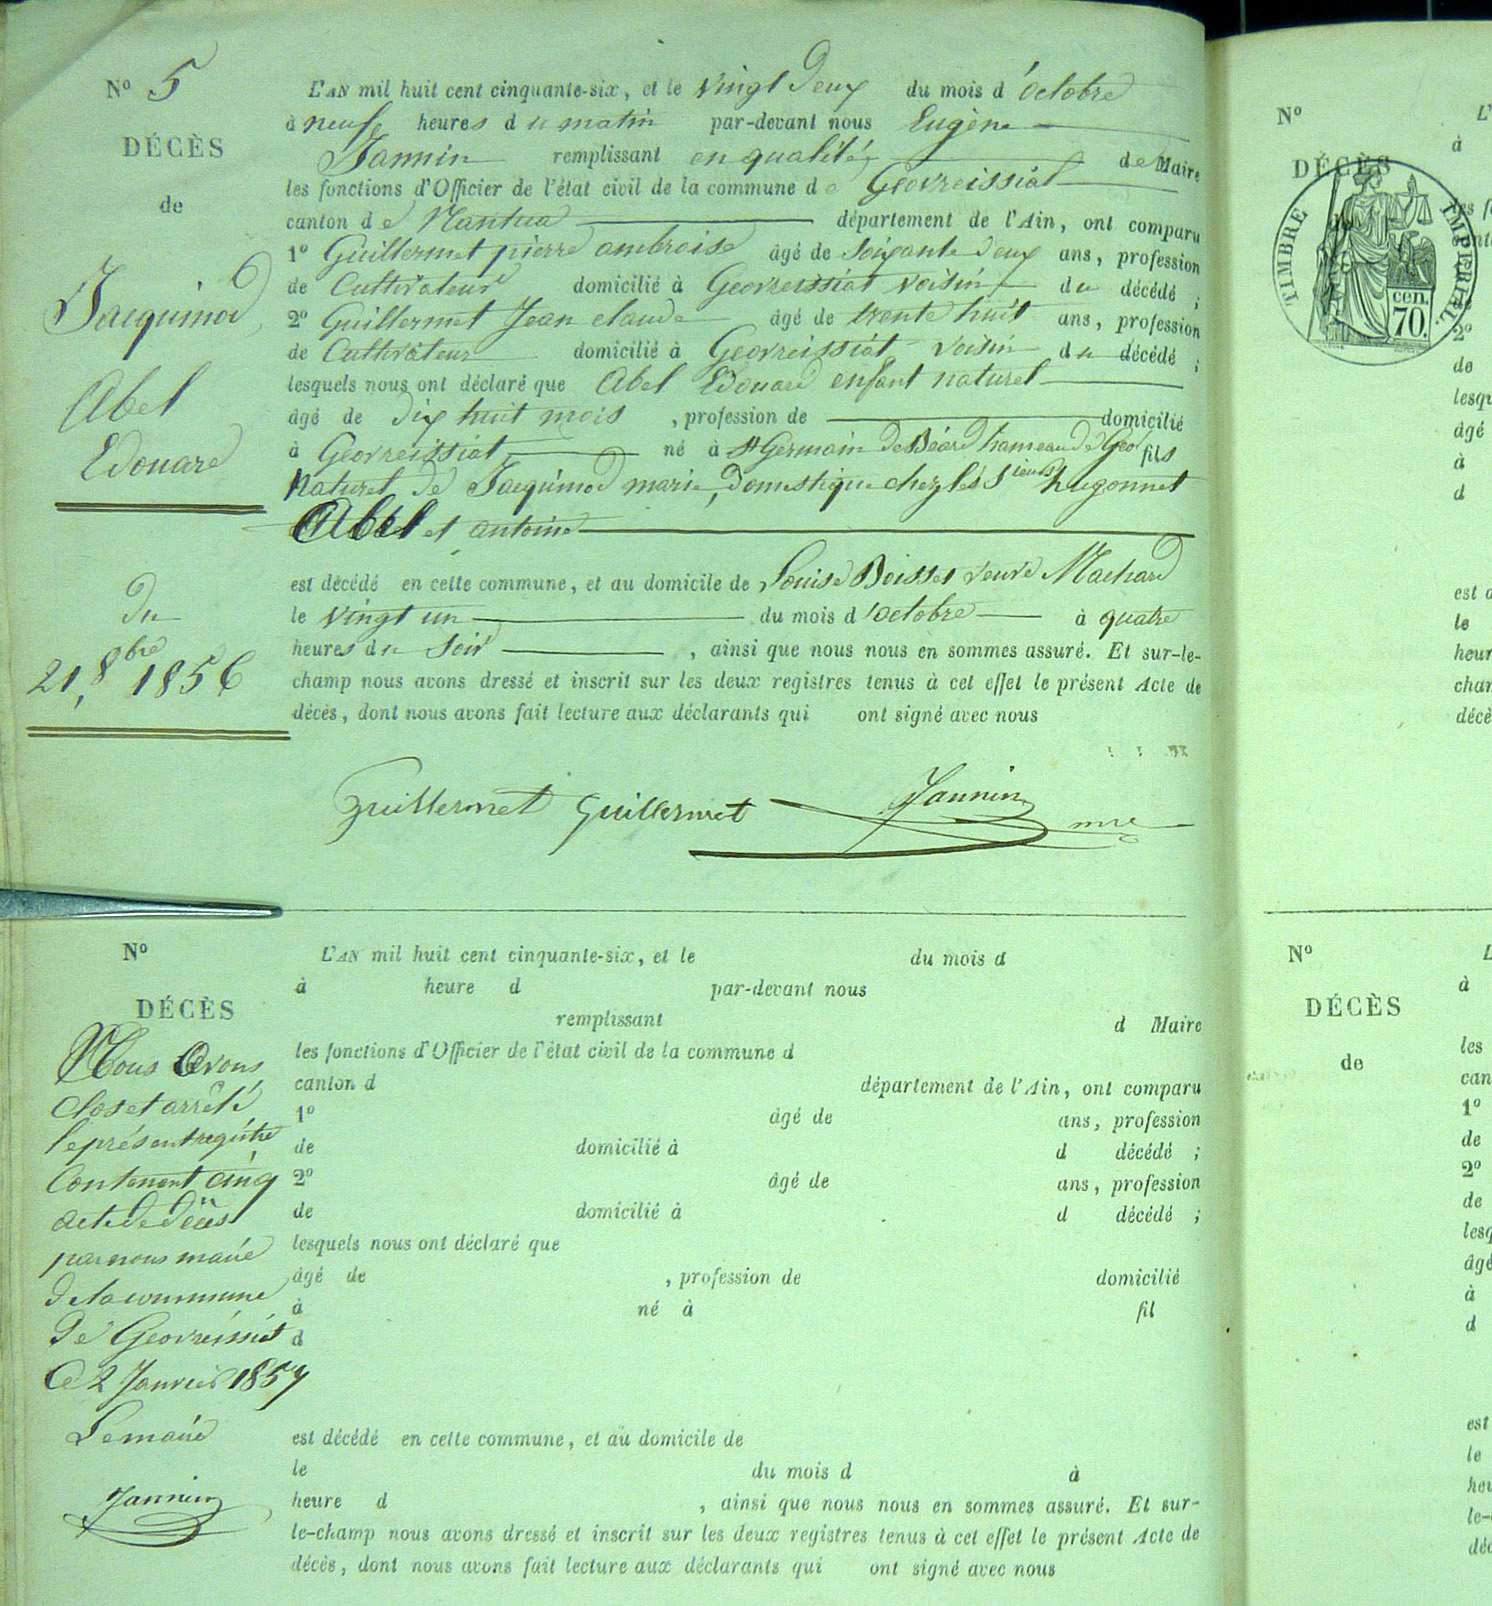 N° 5
DÉCÈS
de
Jacquimod
Abel
Edouard
du
21, 8bre 1856
L'AN mil huit cent cinquante-six, et le vingt deux du mois d'octobre
à neuf heures du matin par-devant nous Eugène
Jannin remplissant en qualité de Maire
les fonctions d'Officier de l'état civil de la commune de Geovreissiat
canton de Nantua département de l'Ain, ont comparu
1° Guillermet pierre ambroise âgé de soixante deux ans, profession
de Cultivateur domicilié à Geovreissiat voisin du décédé ;
2° Guillermet Jean claude âgé de trente huit ans, profession
de Cultivateur domicilié à Geovreissiat voisin du décédé ;
lesquels nous ont déclaré que Abel Edouard enfant naturel
âgé de dix huit mois , profession de domicilié
à Geovreissiat né à St Germain de Béard hameau de Geov fils
Naturel de Jacquimod marie, Domestique chez les Sieurs hugonnet
Abel et antoine
est décédé en cette commune, et au domicile de Louise Boisset veuve Machard
le vingt un du mois d'octobre à quatre
heures du Soir , ainsi que nous nous en sommes assuré. Et sur-le-
champ nous avons dressé et inscrit sur les deux registres tenus à cet effet le présent Acte de
décès, dont nous avons fait lecture aux déclarants qui ont signé avec nous
Guillermet Guillermet Jannin mre
N°
DÉCÈS
Nous Avons
Clos et arrêté
le présent registre
Contenant cinq
acte de décès
par nous maire
de la commune
de Geovreissiat
Ce 2 Janvier 1857
Le maire
Jannin
L'AN mil huit cent cinquante-six, et le du mois d
à heure d par-devant nous
remplissant d Maire
les fonctions d'Officier de l'état civil de la commune d
canton d département de l'Ain, ont comparu
1° âgé de ans, profession
de domicilié à d décédé ;
2° âgé de ans, profession
de domicilié à d décédé ;
lesquels nous ont déclaré que
âgé de , profession de domicilié
à né à fil
d
est décédé en cette commune, et au domicile de
le du mois d à
heure d , ainsi que nous nous en sommes assuré. Et sur-
le-champ nous avons dressé et inscrit sur les deux registres tenus à cet effet le présent Acte de
décès, dont nous avons fait lecture aux déclarants qui ont signé avec nous
N°
DÉCÈS
TIMBRE IMPÉRIAL.
cen.
70.
à
2°
de
lesqu
âgé
à
d
est d
le
heur
cham
décè
N°
DÉCÈS
de
à
les
can
1°
de
2°
de
lesq
âgé
à
d
est
le
heu
le-
déc